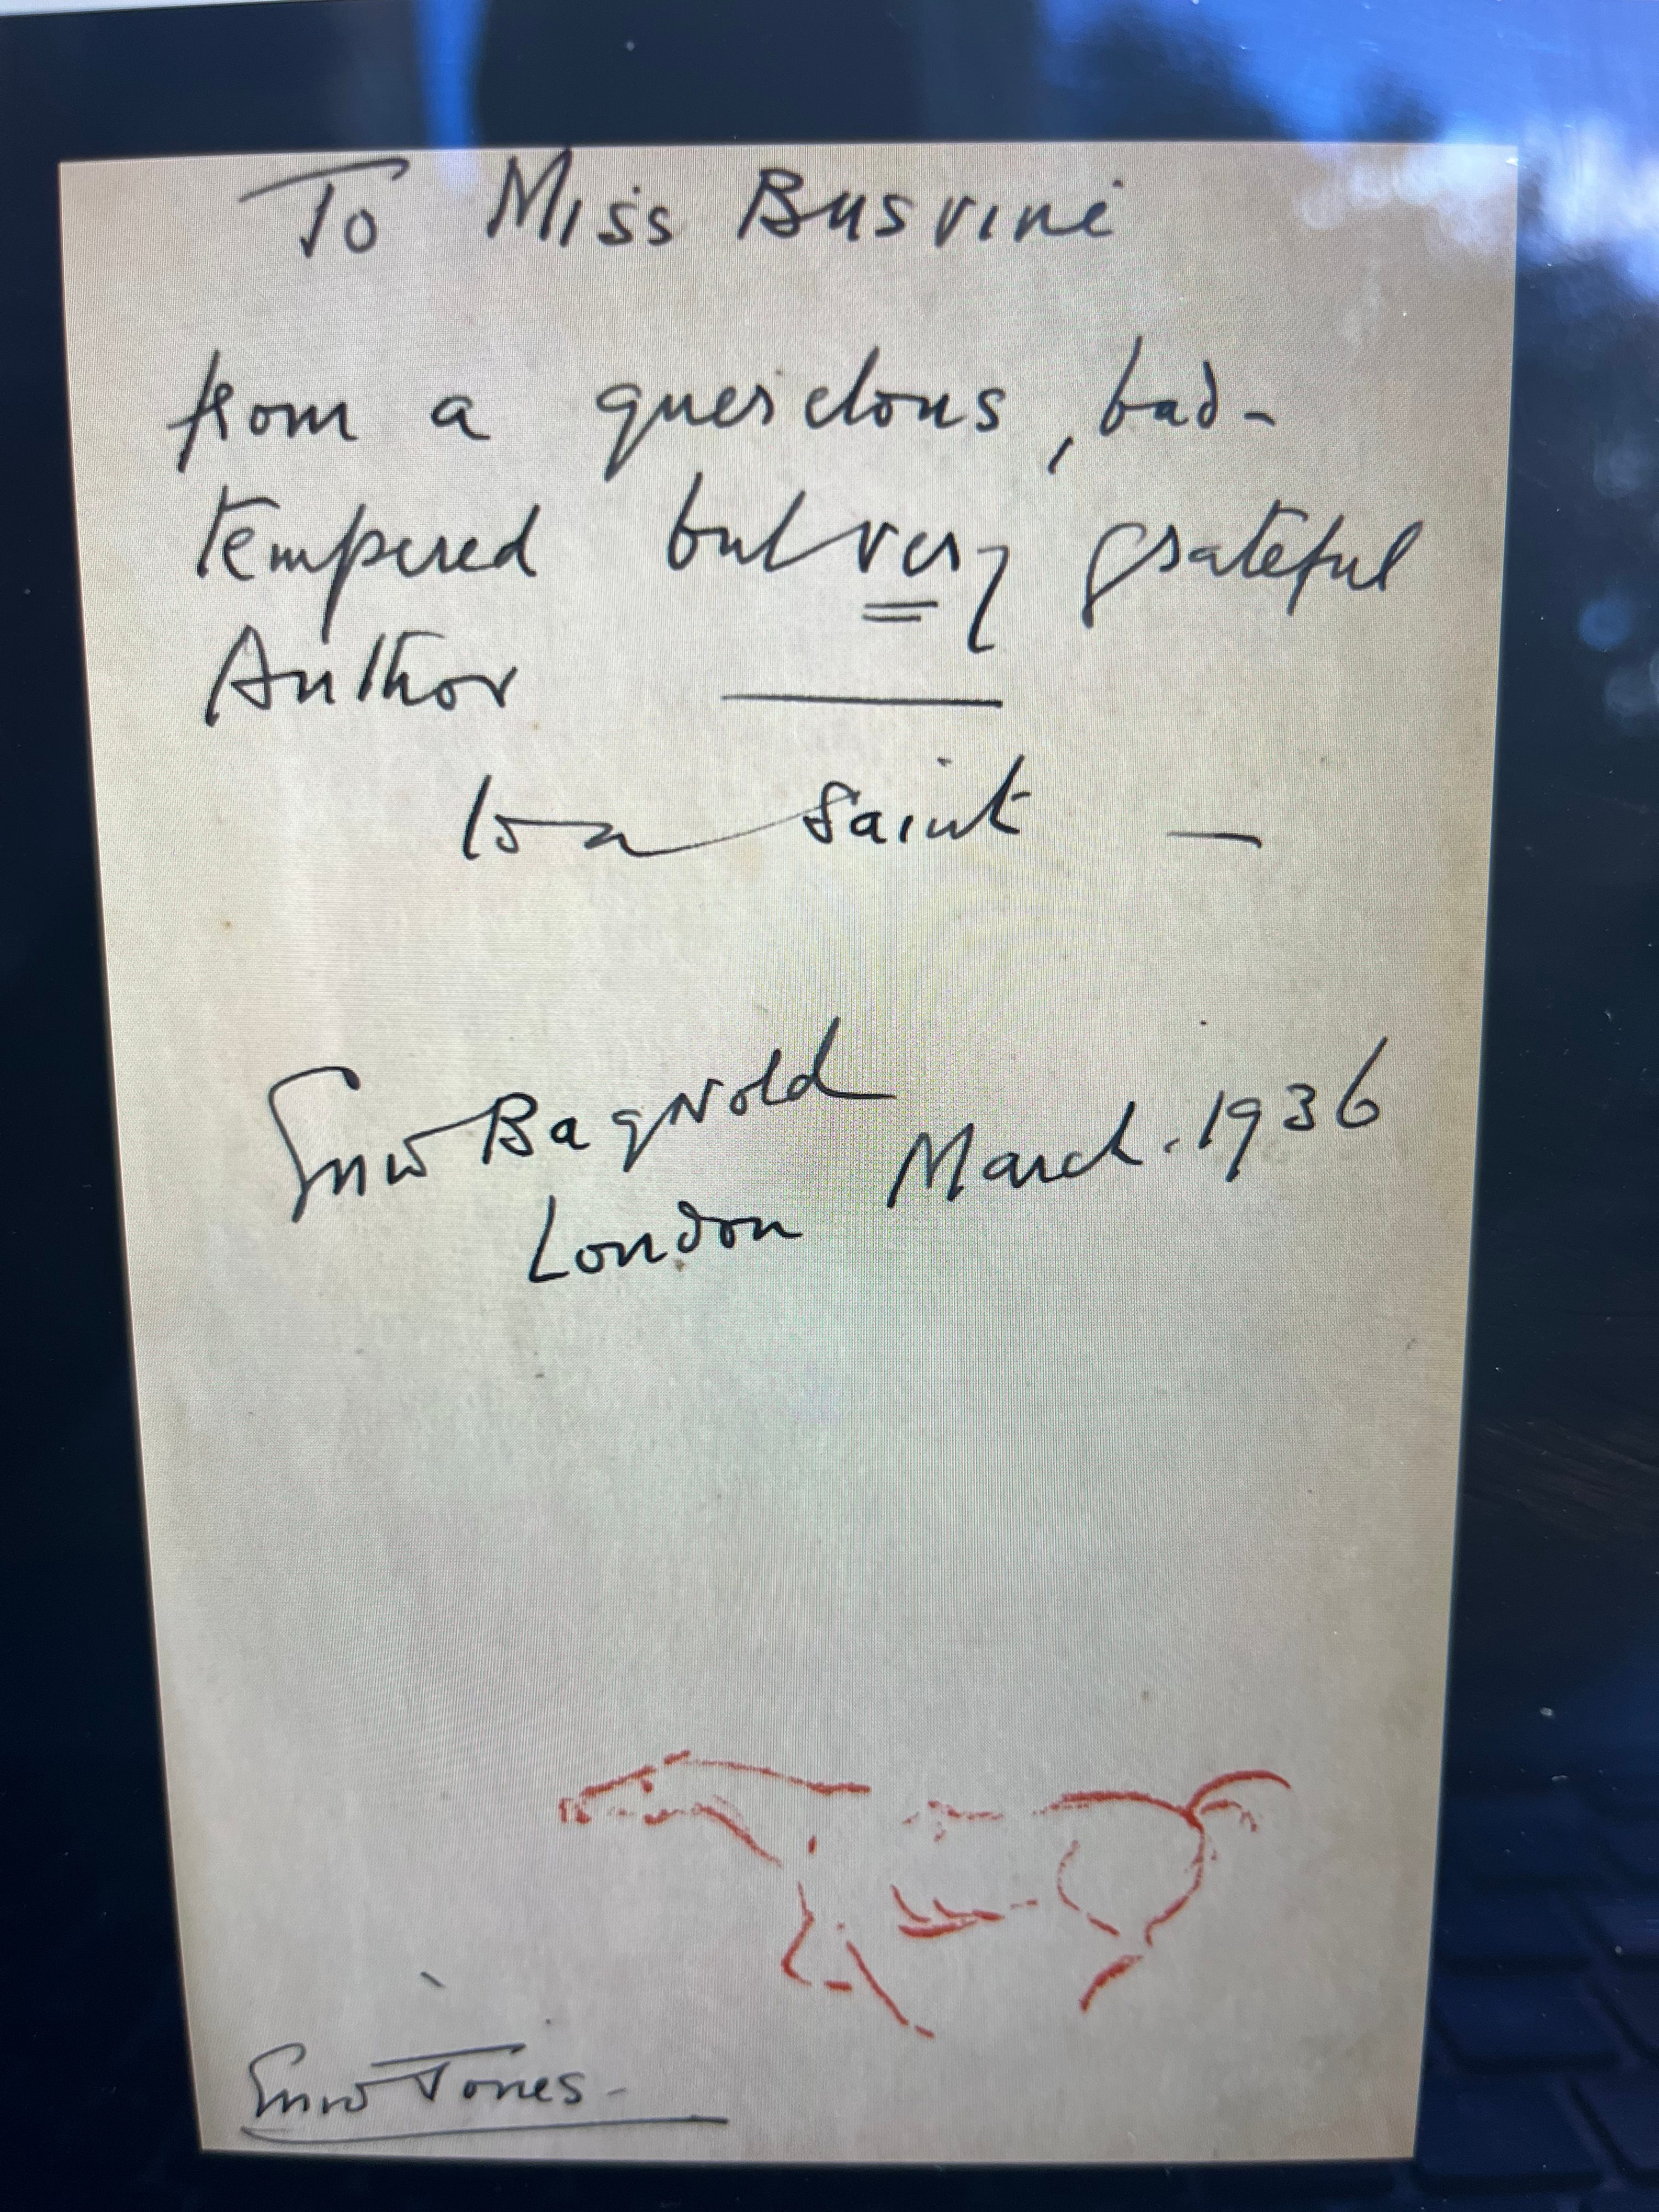 To Miss Busvine
from a querulous, bad-
tempered but very grateful
Author
to a Saint —
Enid Bagnold
March. 1936
London
Enid Jones -